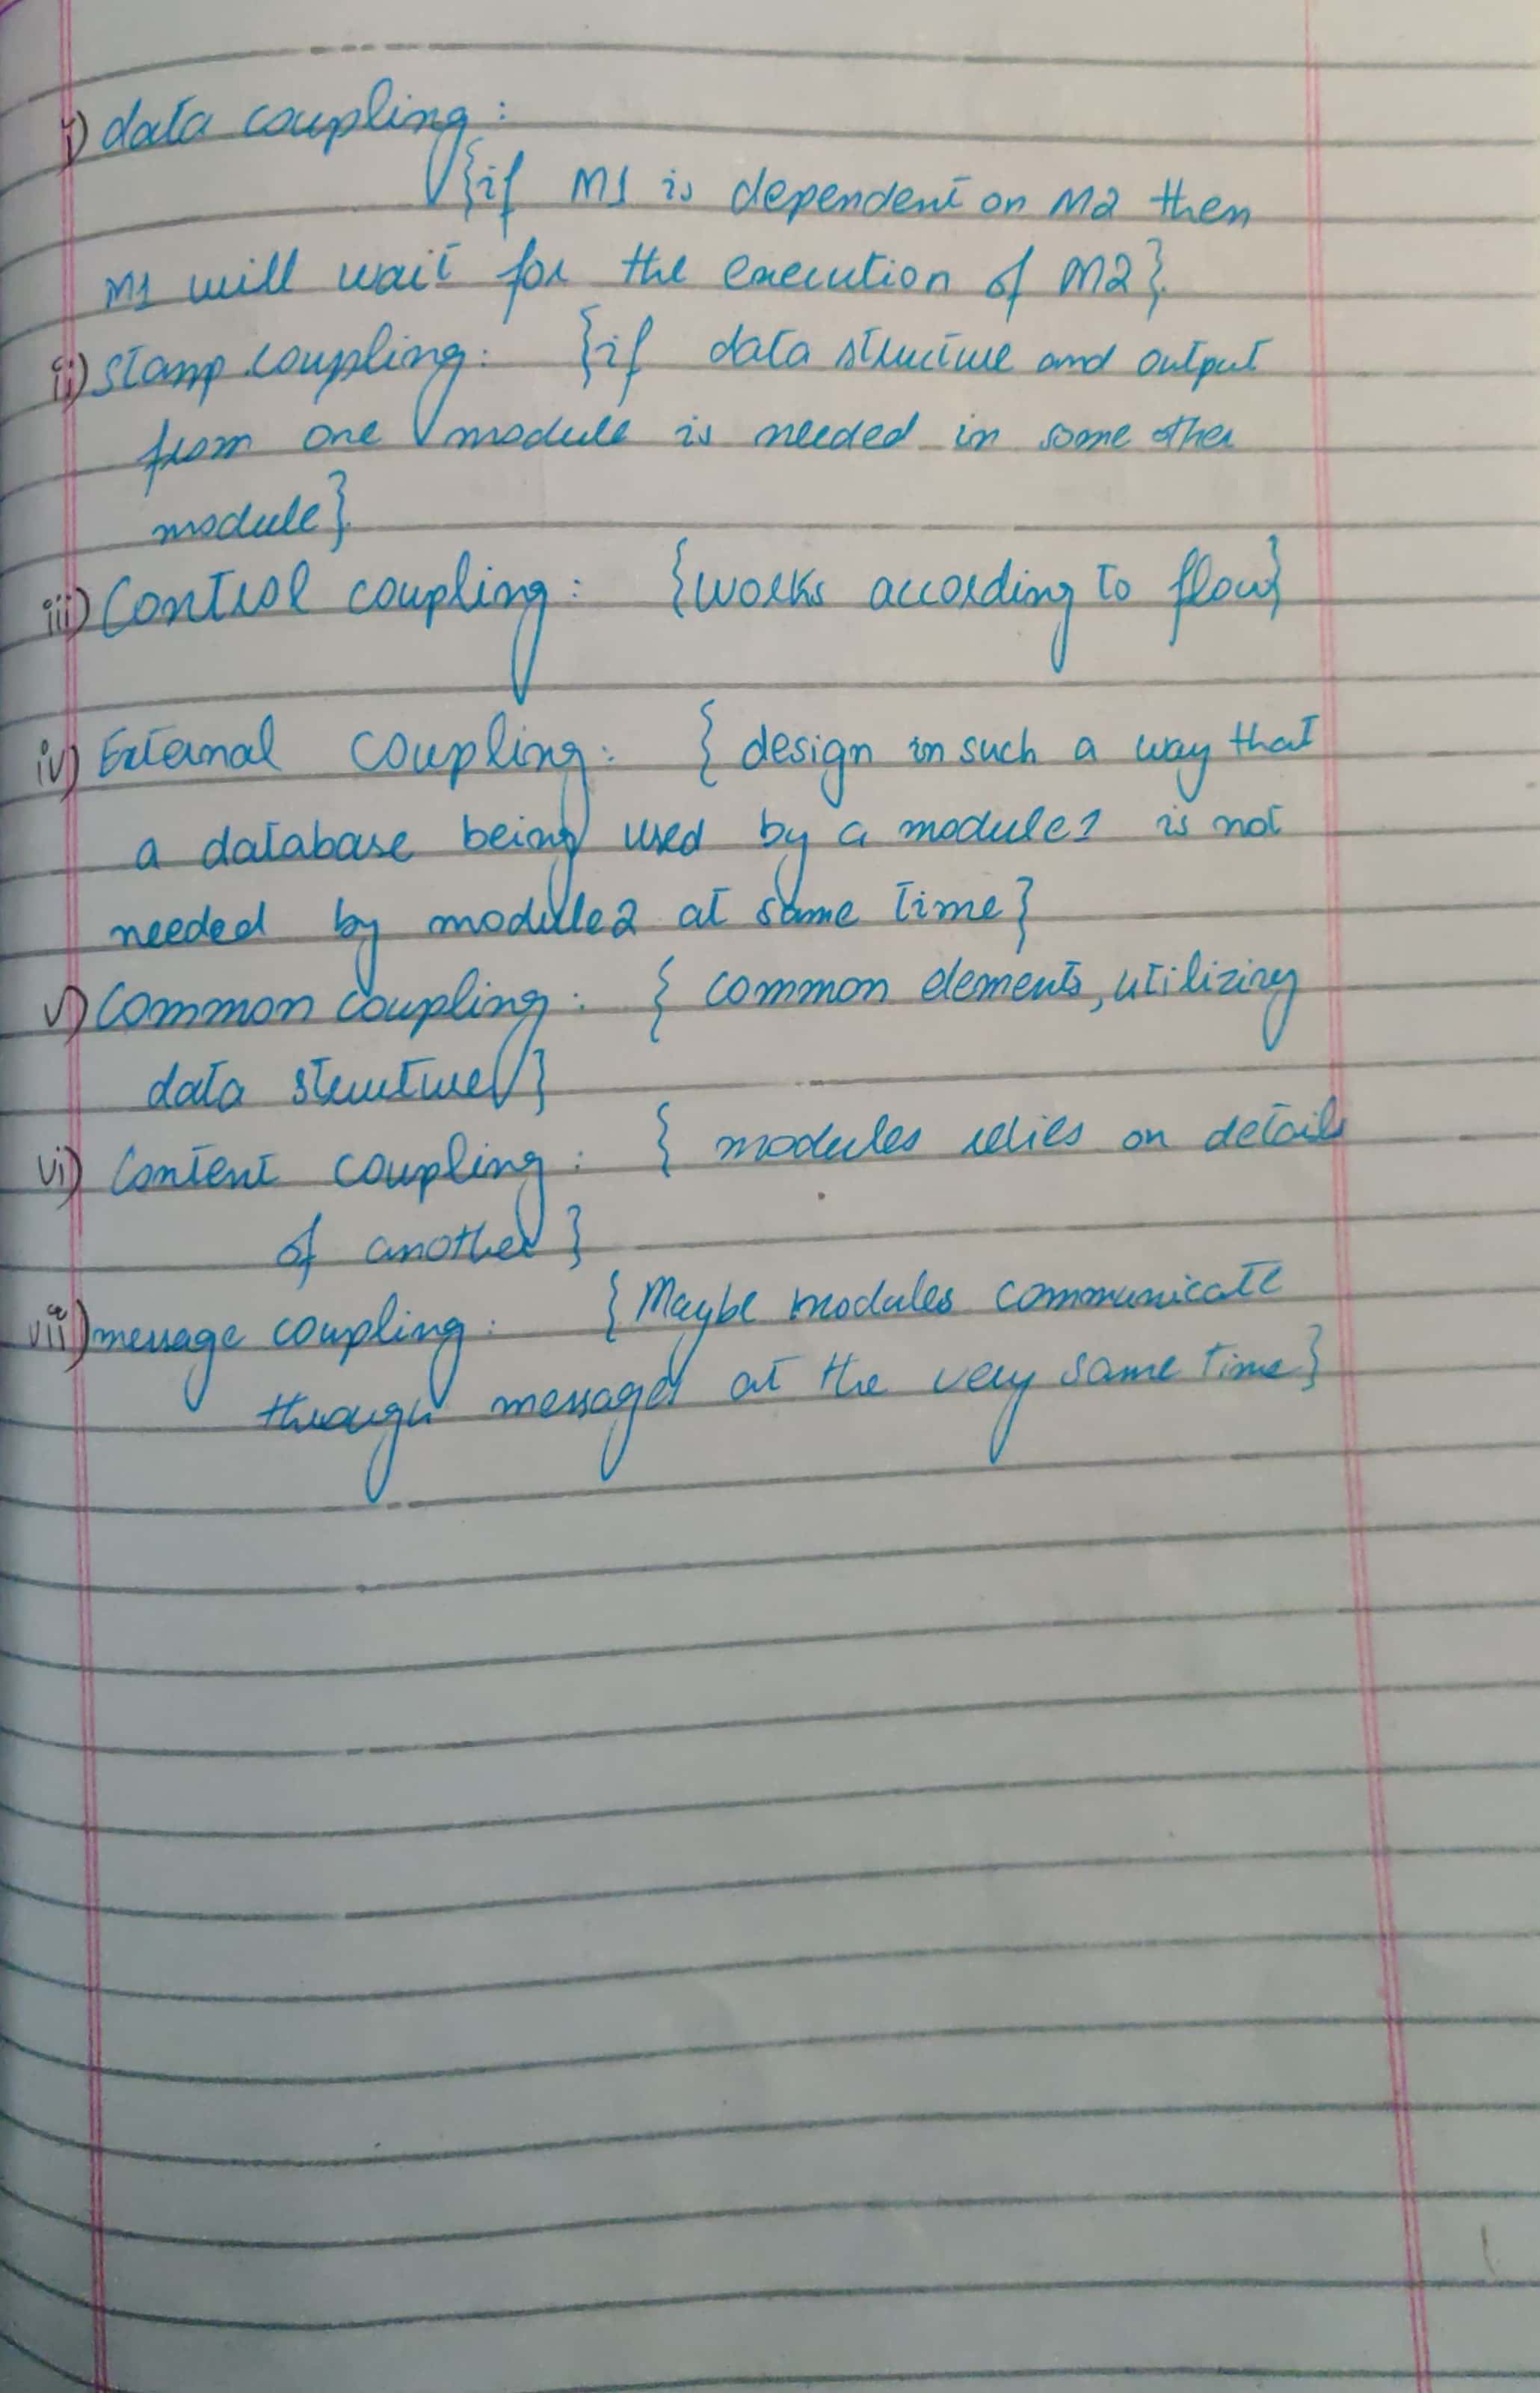 i) data coupling:
{if M1 is dependent on M2 then
M1 will wait for the execution of M2}.
ii) stamp coupling: {if data structure and output
from one module is needed in some other
module}.
iii) Control coupling: {works according to flow}
iv) External coupling: { design in such a way that
a database being used by a module1 is not
needed by module2 at same time}
v) Common coupling: { common elements, utilizing
data structure}
vi) Content coupling: { modules relies on details
of another}
vii) message coupling: {Maybe modules communicate
through messages at the very same time}